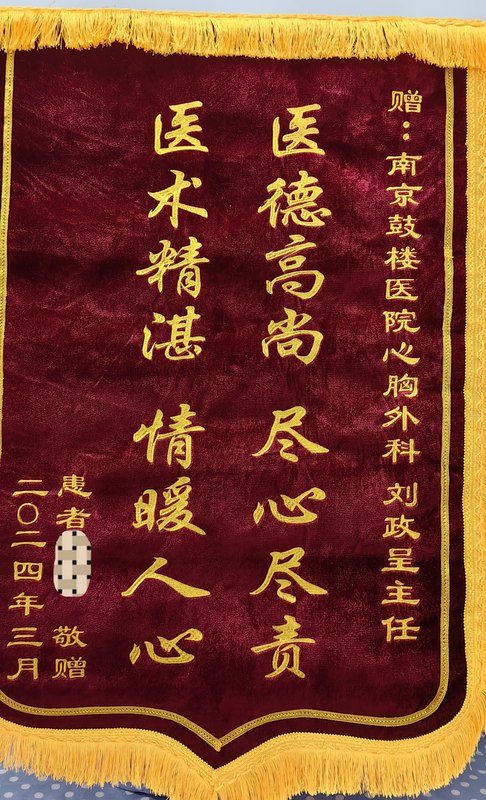 赠：南京鼓楼医院心胸外科 刘政呈主任
医德高尚 尽心尽责
医术精湛 情暖人心
患者 敬赠
二〇二四年三月